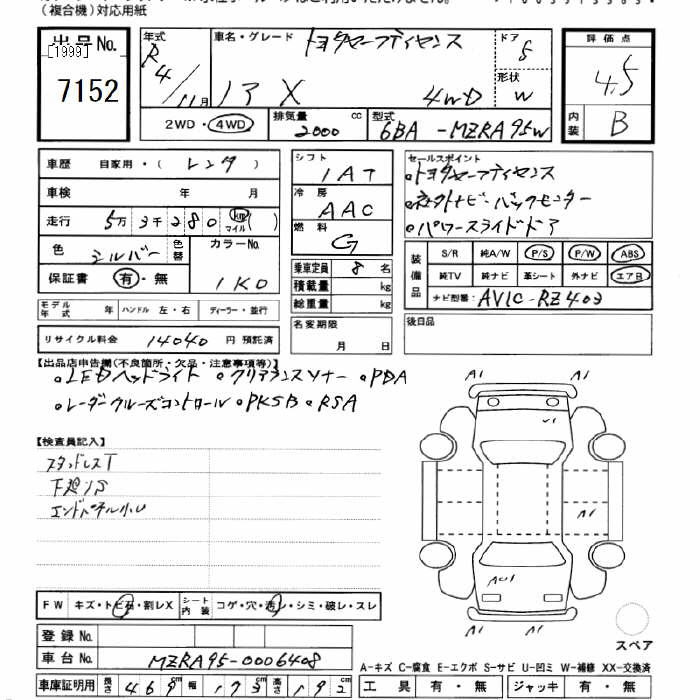 (複合機)対応用紙
出品No.
[1999]
7152
年式
R4/11月
車名・グレード
トヨタセーフティセンス
ノア X 4WD
ドア 5
形状 W
評価点
4.5
内装 B
2WD・4WD
排気量 2000 cc
型式 6BA-MZRA95W
車歴 自家用・(レンタ)
車検 年 月
走行 5万3千280 km マイル( )
色 シルバー 色替
カラーNo. 1K0
保証書 有・無
シフト 1AT
冷房 AAC
燃料 G
乗車定員 8名
積載量 kg
総重量 kg
セールスポイント
・トヨタセーフティセンス
・社外ナビ・バックモニター
・パワースライドドア
装備品
S/R 純A/W P/S P/W ABS
純TV 純ナビ 革シート 外ナビ エアB
ナビ型番: AVIC-RZ403
モデル年式 年 ハンドル 左・右 ディーラー・並行
リサイクル料金 14040 円 預託済
名変期限 月 日
後日品
【出品店申告欄(不良箇所・欠品・注意事項等)】
・LEDヘッドライト ・クリアランスソナー ・PDA
・レーダークルーズコントロール ・PKSB ・RSA
【検査員記入】
スタッドレスT
下廻りS
エンドパネル小U
A1 A1
A1
A1
A1
FW キズ・トビ石・割レX
シート内装 コゲ・穴・汚レ・シミ・破レ・スレ
登録No.
車台No. MZRA95-0006408
車庫証明用 長さ 469cm 幅 173cm 高さ 192cm
スペア
A-キズ C-腐食 E-エクボ S-サビ U-凹ミ W-補修 XX-交換済
工具 有・無 ジャッキ 有・無